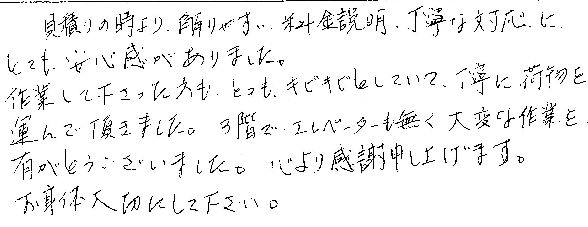 見積りの時より、解りやすい料金説明、丁寧な対応に
とても安心感がありました。
作業して下さった方も、とても、キビキビとしていて、丁寧に荷物を
運んで頂きました。3階で、エレベーターも無く大変な作業を
有がとうございました。心より感謝申し上げます。
お身体大切にして下さい。